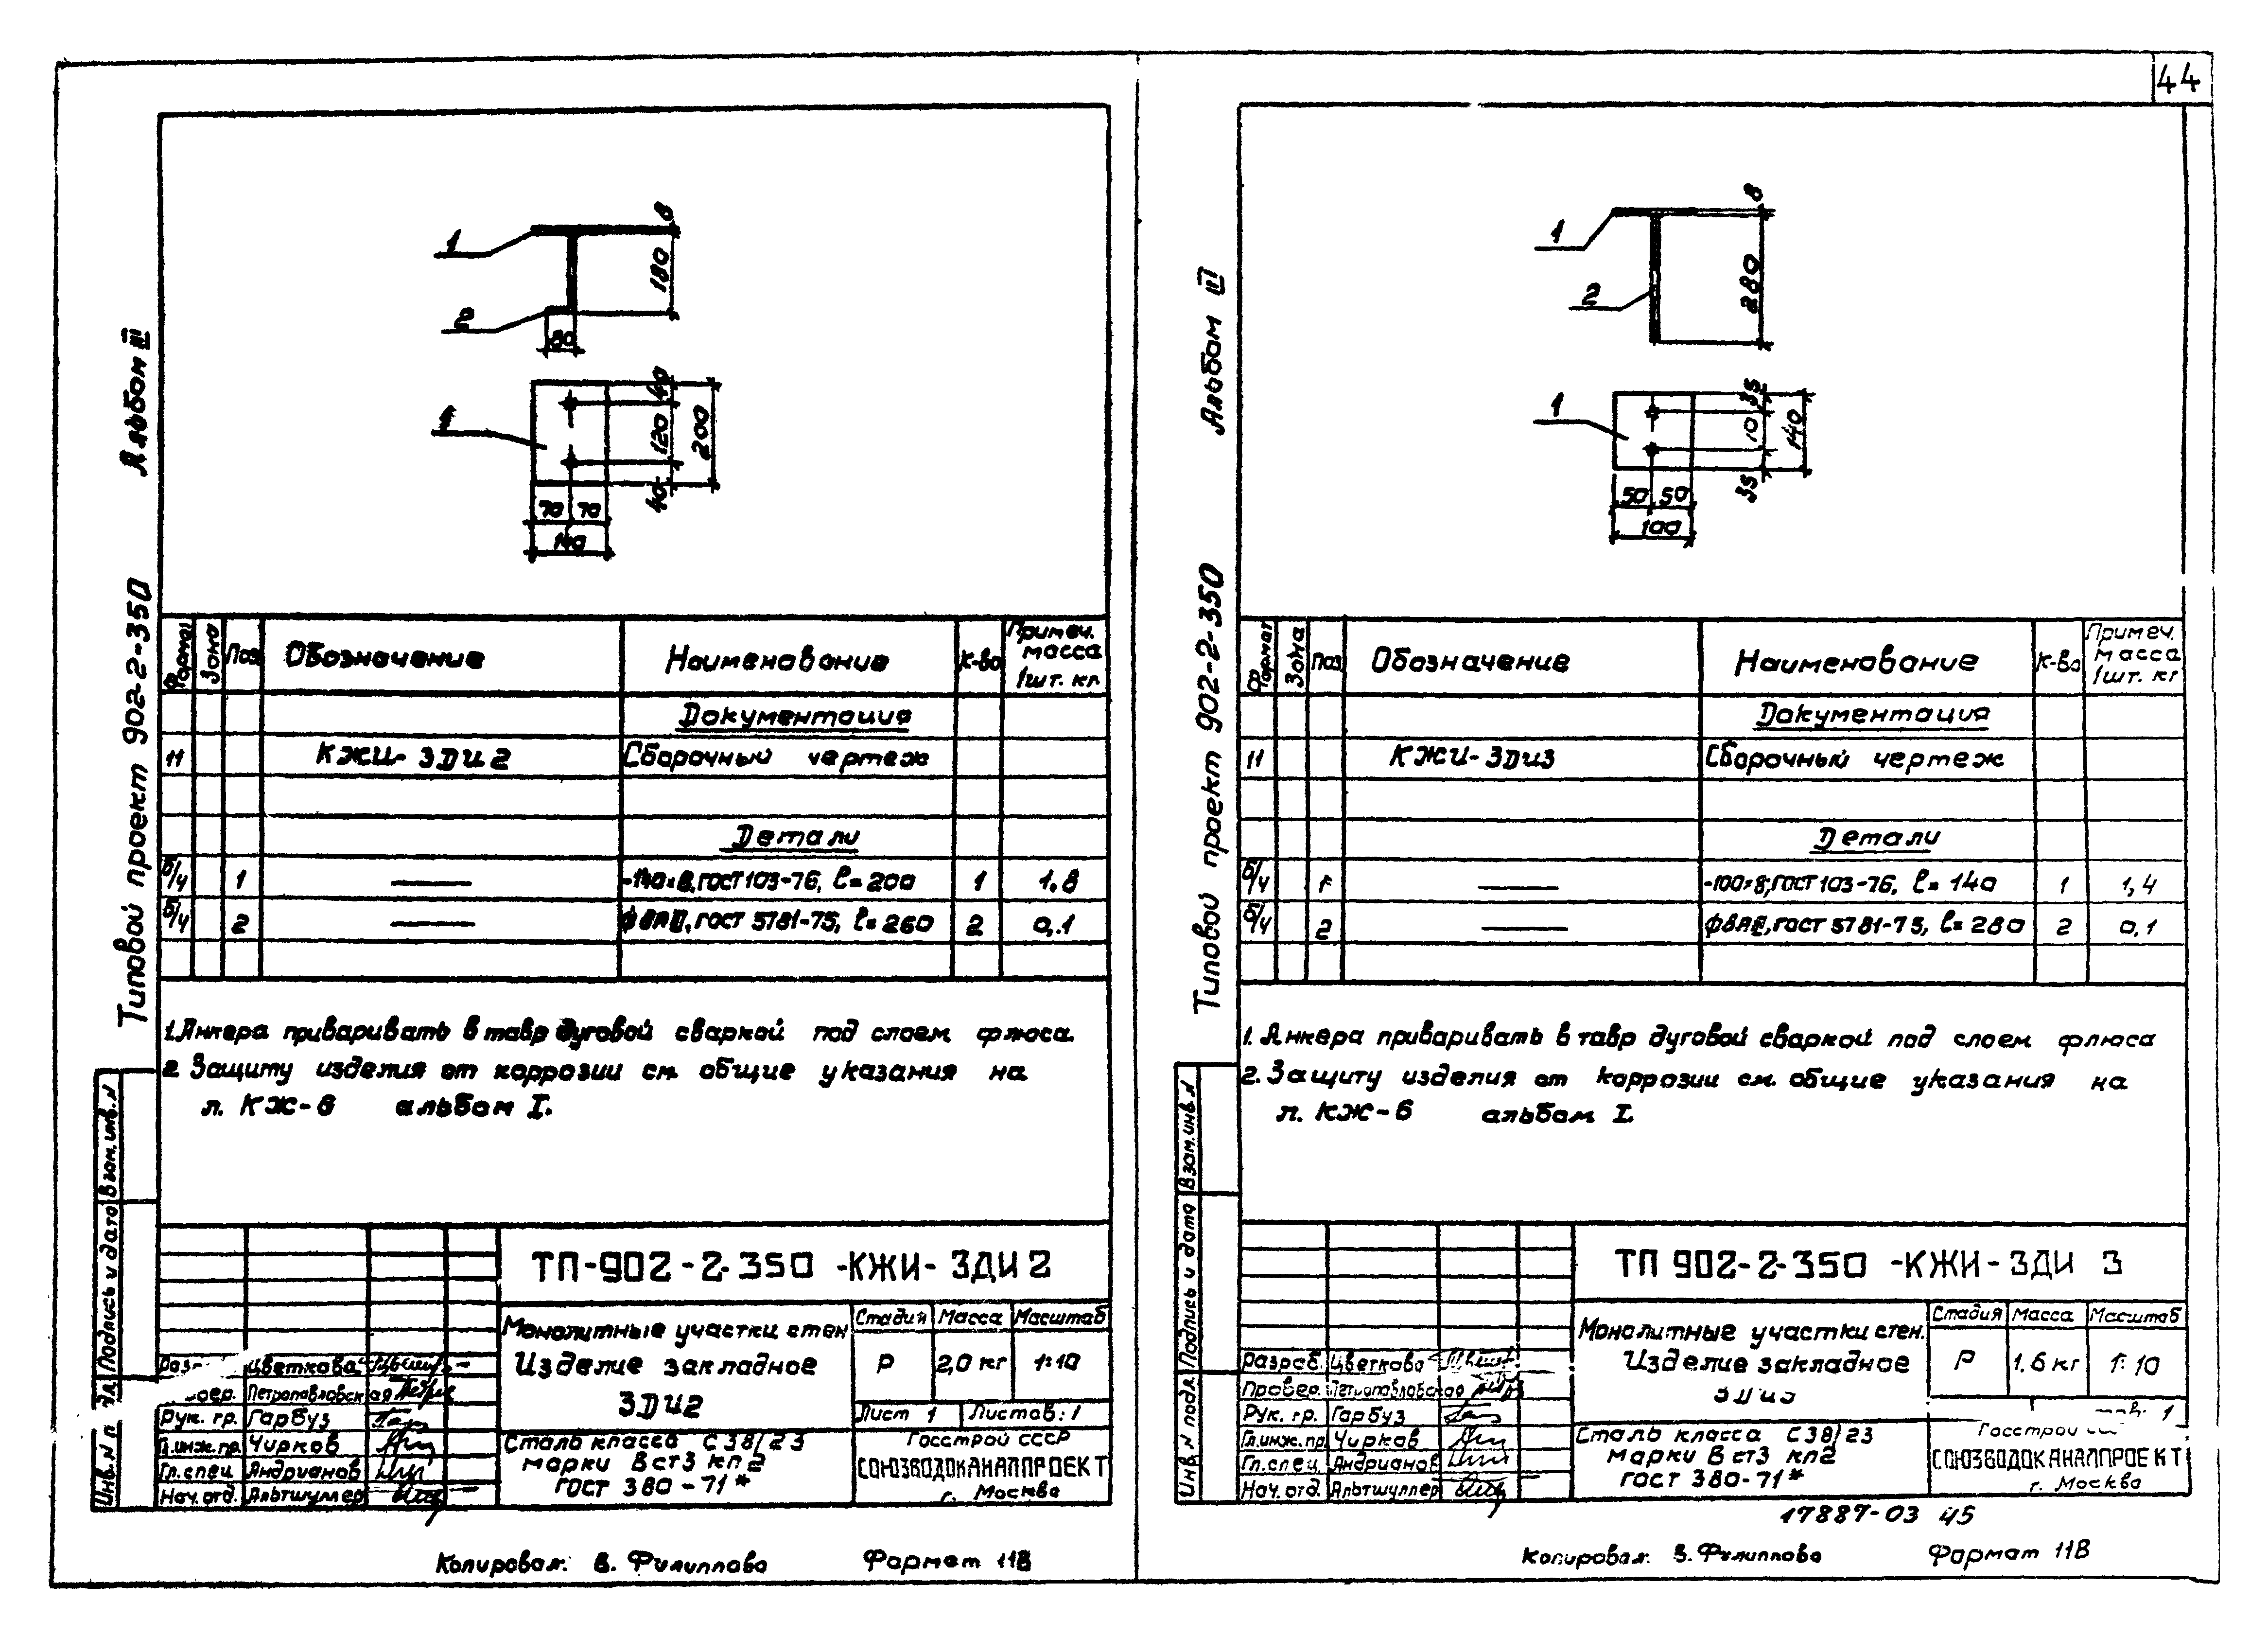 44
Типовой проект 902-2-350 Альбом III
1
2
8
180
80
1
40
120
200
40
70 70
140
Формат Зона Поз. Обозначение Наименование К-во Примеч. масса 1шт. кг.
Документация
11 КЖИ-ЗДИ2 Сборочный чертеж
Детали
б/ч 1 — -140×8, ГОСТ 103-76, ℓ=200 1 1.8
б/ч 2 — ф8АIII, ГОСТ 5781-75, ℓ=260 2 0,1
1. Анкера приваривать в тавр дуговой сваркой под слоем флюса.
2 Защиту изделия от коррозии см. общие указания на
л. КЖ-6 альбом I.
Инв. N п Подпись и дата Взам. инв. N
ТП-902-2-350-КЖИ-ЗДИ2
Монолитные участки стен
Изделие закладное
ЗДИ2
Стадия Масса Масштаб
Р 2,0 кг 1:10
Лист 1 Листов: 1
Сталь класса С38/23
марки ВстЗ кп2
ГОСТ 380-71*
Госстрой СССР
СОЮЗВОДОКАНАЛПРОЕКТ
г. Москва
Цветкова
Петропавловская
Рук. гр. Гарбуз
Гл.инж.пр. Чирков
Гл.спец. Андрианов
Нач.отд. Альтшуллер
Копировал: В. Филиппова Формат 11В
Типовой проект 902-2-350 Альбом III
1
2
8
280
1
35
70
140
35
50 50
100
Формат Зона Поз Обозначение Наименование К-во Примеч. масса 1шт. кг
Документация
11 КЖИ-ЗДИ3 Сборочный чертеж
Детали
б/ч 1 — -100×8, ГОСТ 103-76, ℓ=140 1 1,4
б/ч 2 — ф8АIII, ГОСТ 5781-75, ℓ=280 2 0,1
1. Анкера приваривать в тавр дуговой сваркой под слоем флюса
2. Защиту изделия от коррозии см. общие указания на
л. КЖ-6 альбом I.
Инв. N подл. Подпись и дата Взам. инв. N
ТП 902-2-350-КЖИ-ЗДИ 3
Монолитные участки стен.
Изделие закладное
ЗДИ3
Стадия Масса Масштаб
Р 1.6 кг 1:10
1
Сталь класса С38/23
марки ВстЗ кп2
ГОСТ 380-71*
Госстрой
СОЮЗВОДОКАНАЛПРОЕКТ
г. Москва
Разраб. Цветкова
Провер. Петропавловская
Рук. гр. Гарбуз
Гл.инж.пр. Чирков
Гл.спец. Андрианов
Нач.отд. Альтшуллер
17887-03 45
Копировал: В. Филиппова Формат 11В